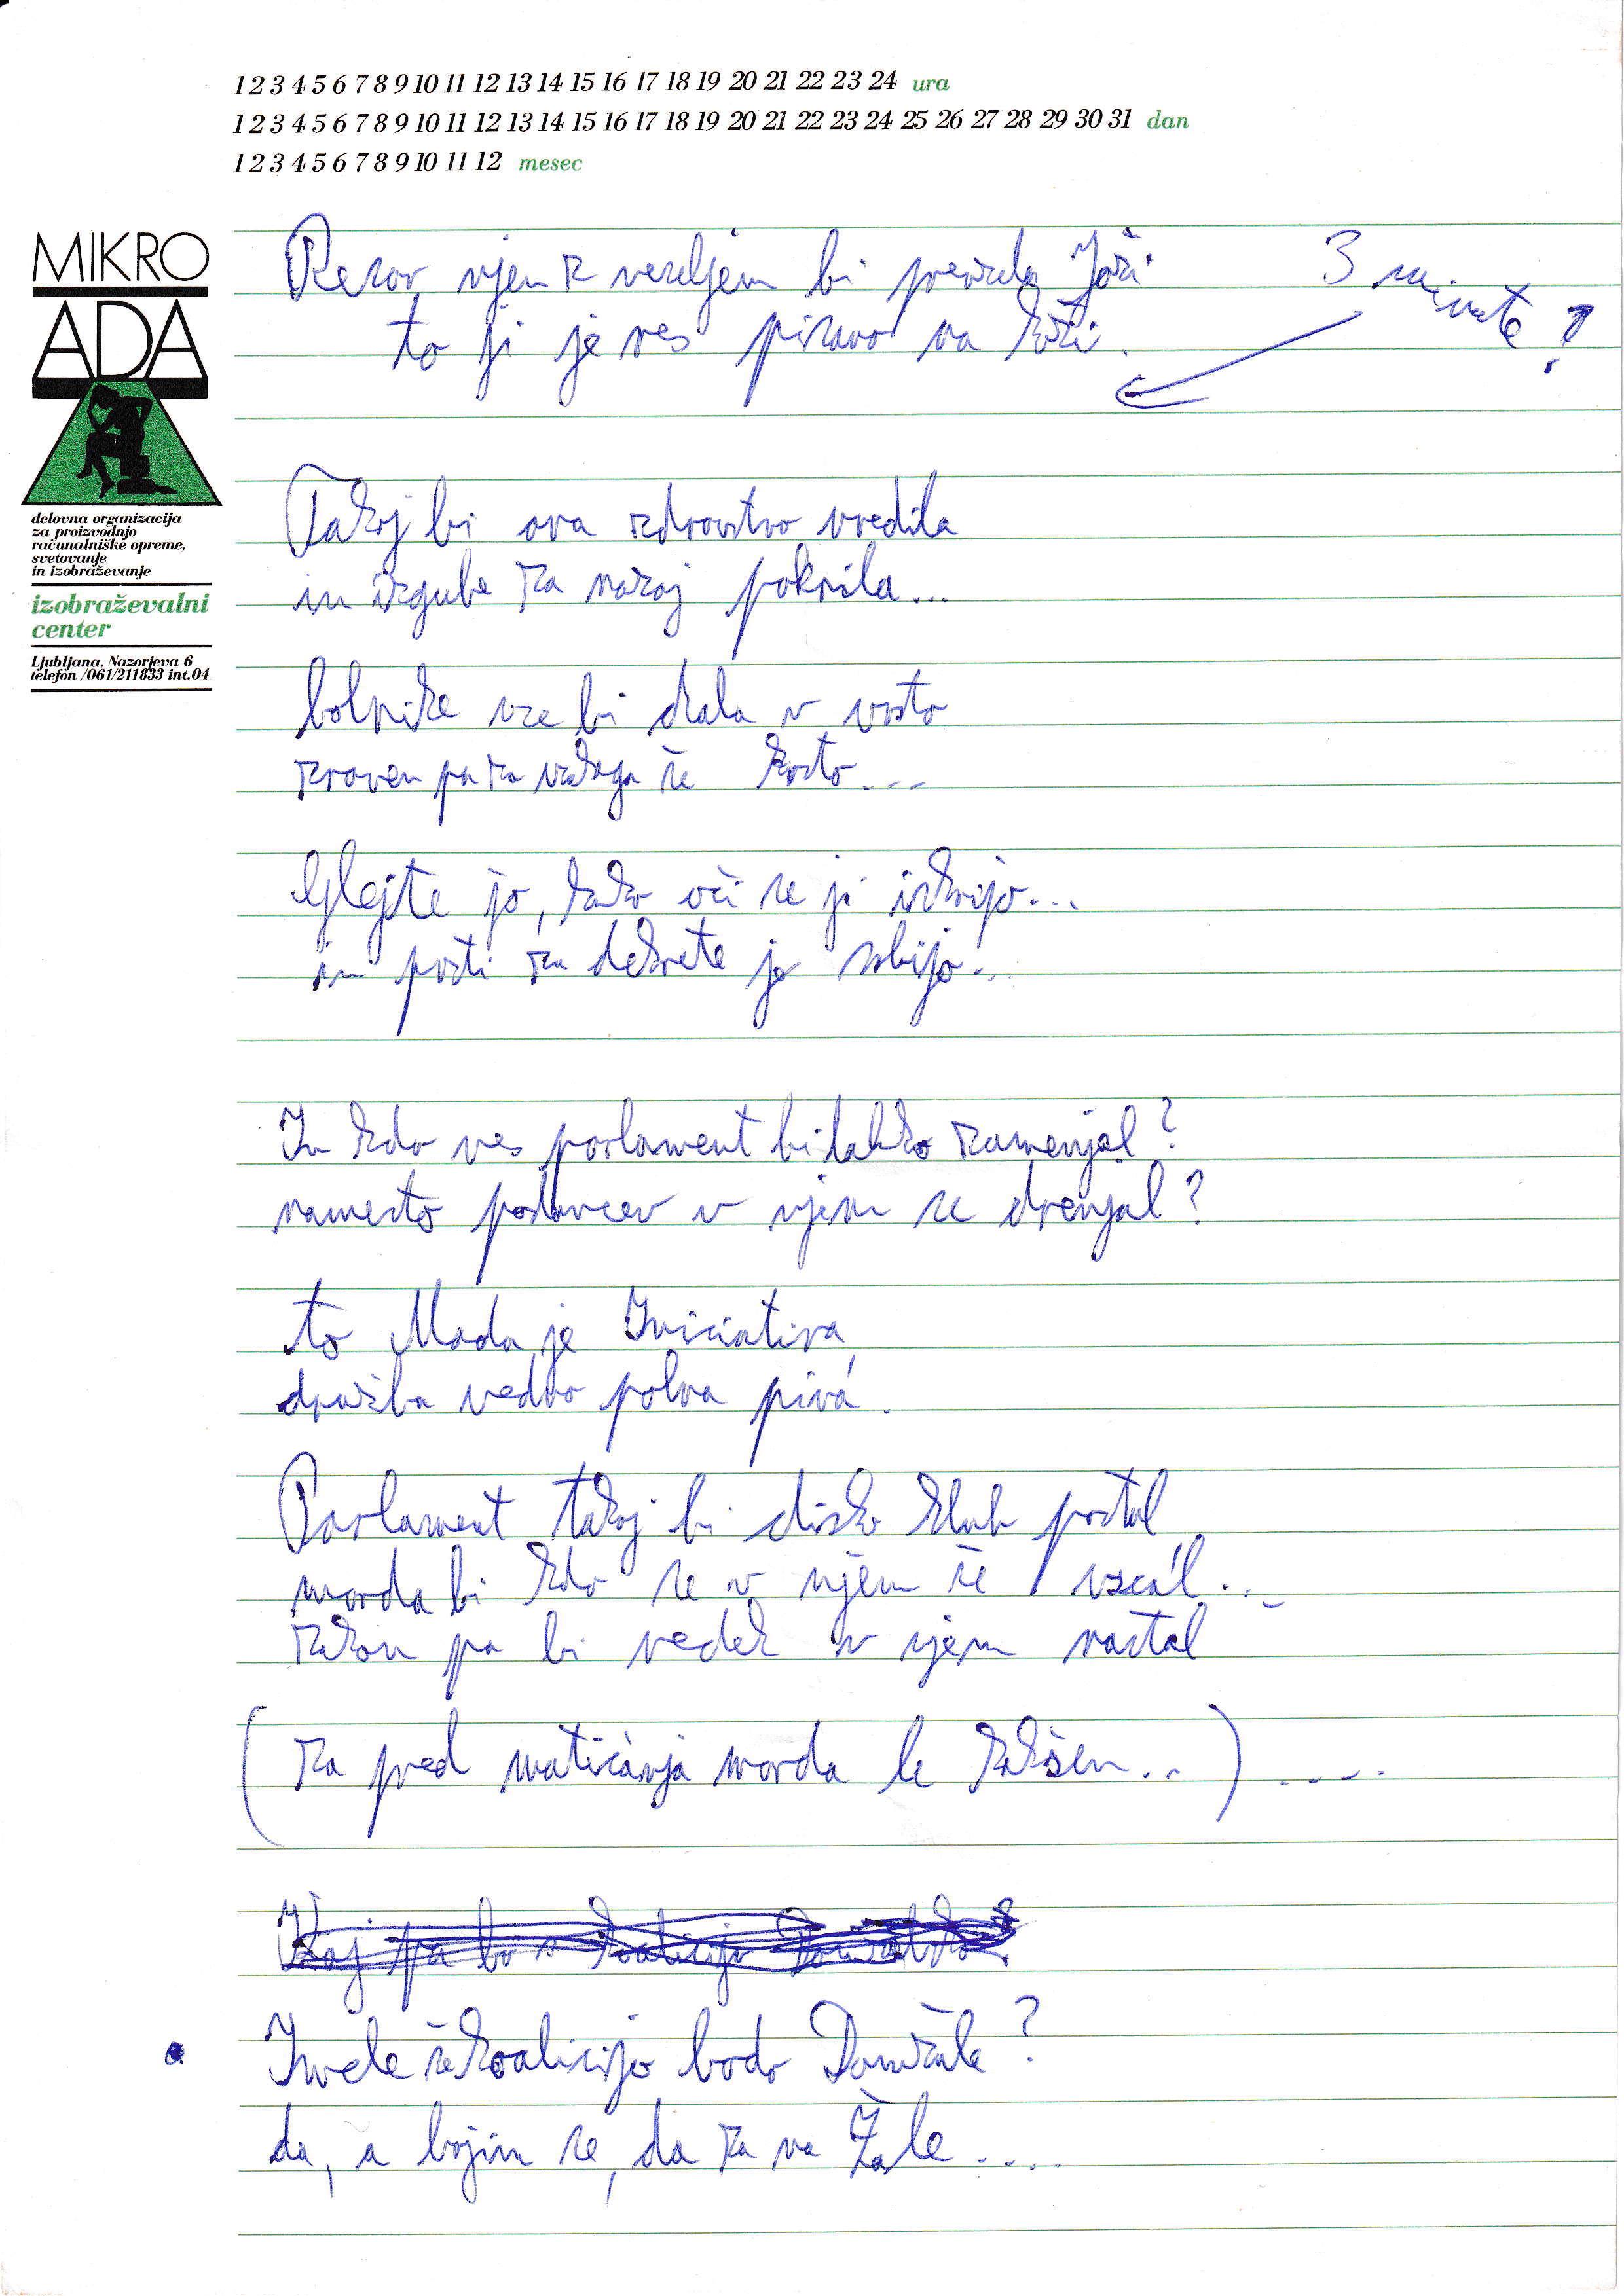 1 2 3 4 5 6 7 8 9 10 11 12 13 14 15 16 17 18 19 20 21 22 23 24 ura
1 2 3 4 5 6 7 8 9 10 11 12 13 14 15 16 17 18 19 20 21 22 23 24 25 26 27 28 29 30 31 dan
1 2 3 4 5 6 7 8 9 10 11 12 mesec
MIKRO
ADA
delovna organizacija
za proizvodnjo
računalniške opreme,
svetovanje
in izobraževanje
izobraževalni
center
Ljubljana, Nazorjeva 6
telefon /061/211833 int.04
Resor njen z veseljem bi prevzela Joži
3 minute?
to ji je res pisano na koži.
Takoj bi ona zdravstvo uredila
in izgube za nazaj pokrila...
bolnike vse bi dala v vrsto
zraven pa za vsakega še krsto...
Glejte jo, kako oči se ji iskrijo...
in prsti za dekrete jo srbijo...
In kdo ves parlament bi lahko zamenjal?
namesto poslancev v njem se drenjal?
to Mlada je Iniciativa,
družba vedno polna piva.
Parlament takoj bi disko klub postal
morda bi kdo se v njem še uscal...
zakon pa bi redek v njem nastal
(za pred matičarja morda le kakšen...) ....
Kaj pa bo s koalicijo Domžalsko?
Imele še koalicijo bodo Domžale?
da, a bojim se, da za na Žale....